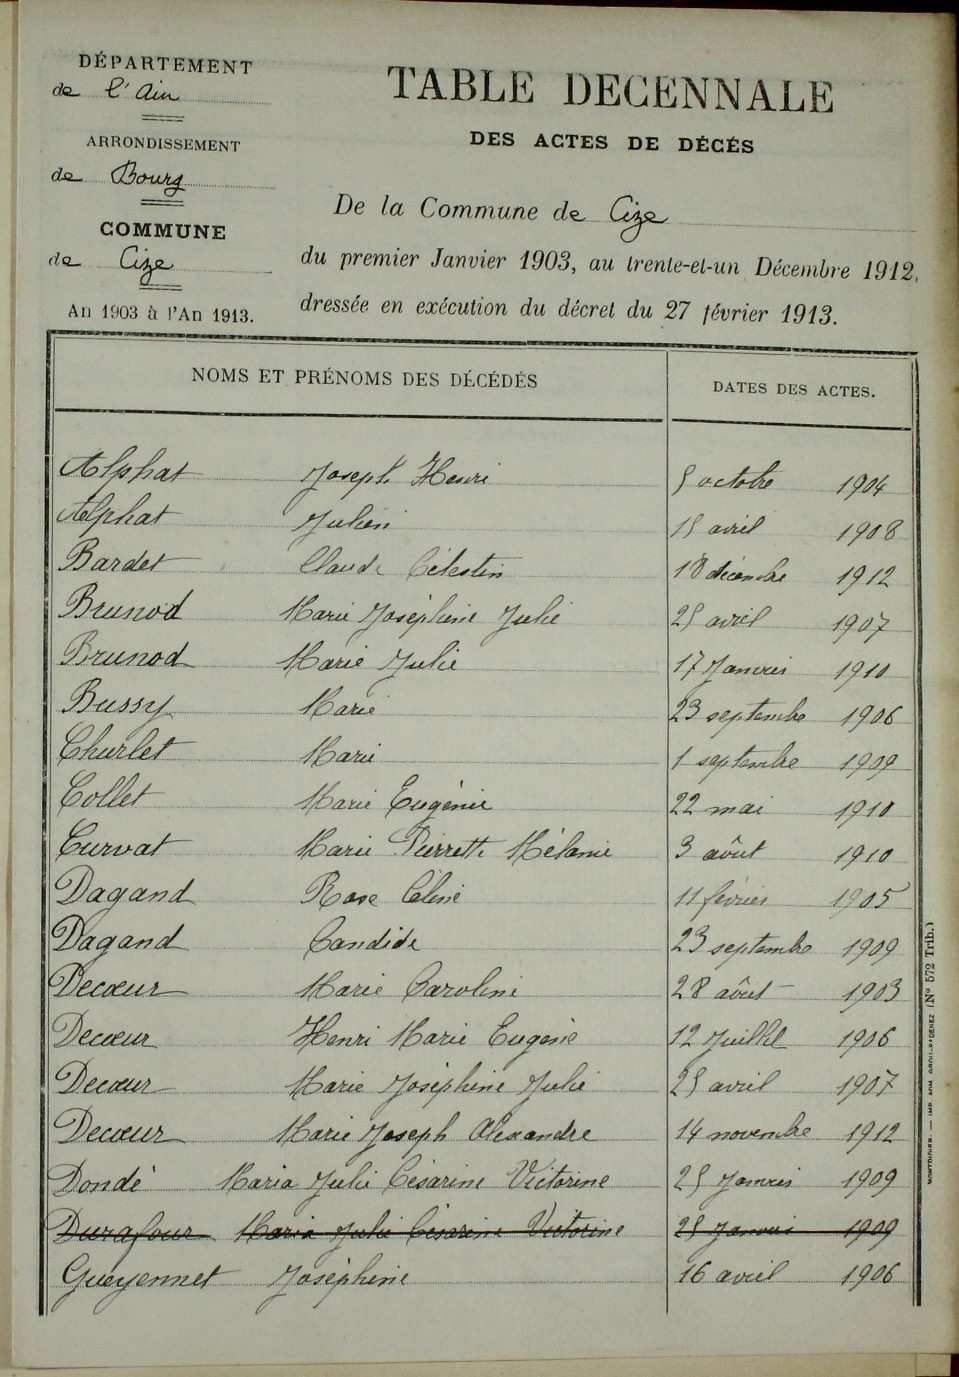 DÉPARTEMENT
de l'Ain
ARRONDISSEMENT
de Bourg
COMMUNE
de Cize
An 1903 à l'An 1913.
TABLE DECENNALE
DES ACTES DE DÉCÉS
De la Commune de Cize
du premier Janvier 1903, au trente-et-un Décembre 1912,
dressée en exécution du décret du 27 février 1913.
NOMS ET PRÉNOMS DES DÉCÉDÉS DATES DES ACTES.
Alphat Joseph Henri 5 octobre 1904
Alphat Julien 15 avril 1908
Bardet Claude Célestin 18 décembre 1912
Brunod Marie Joséphine Julie 25 avril 1907
Brunod Marie Julie 17 Janvier 1910
Bussy Marie 23 septembre 1906
Churlet Marie 1 septembre 1909
Collet Marie Eugénie 22 mai 1910
Curvat Marie Pierrette Mélanie 3 août 1910
Dagand Rose Céline 11 février 1905
Dagand Candide 23 septembre 1909
Decœur Marie Caroline 28 août 1903
Decœur Henri Marie Eugène 12 Juillet 1906
Decœur Marie Joséphine Julie 25 avril 1907
Decœur Marie Joseph Alexandre 14 novembre 1912
Dondé Maria Julie Césarine Victorine 25 Janvier 1909
Durafour Maria Julie Césarine Victorine 25 Janvier 1909
Gueyennet Joséphine 16 avril 1906
(N° 572 Trib.)